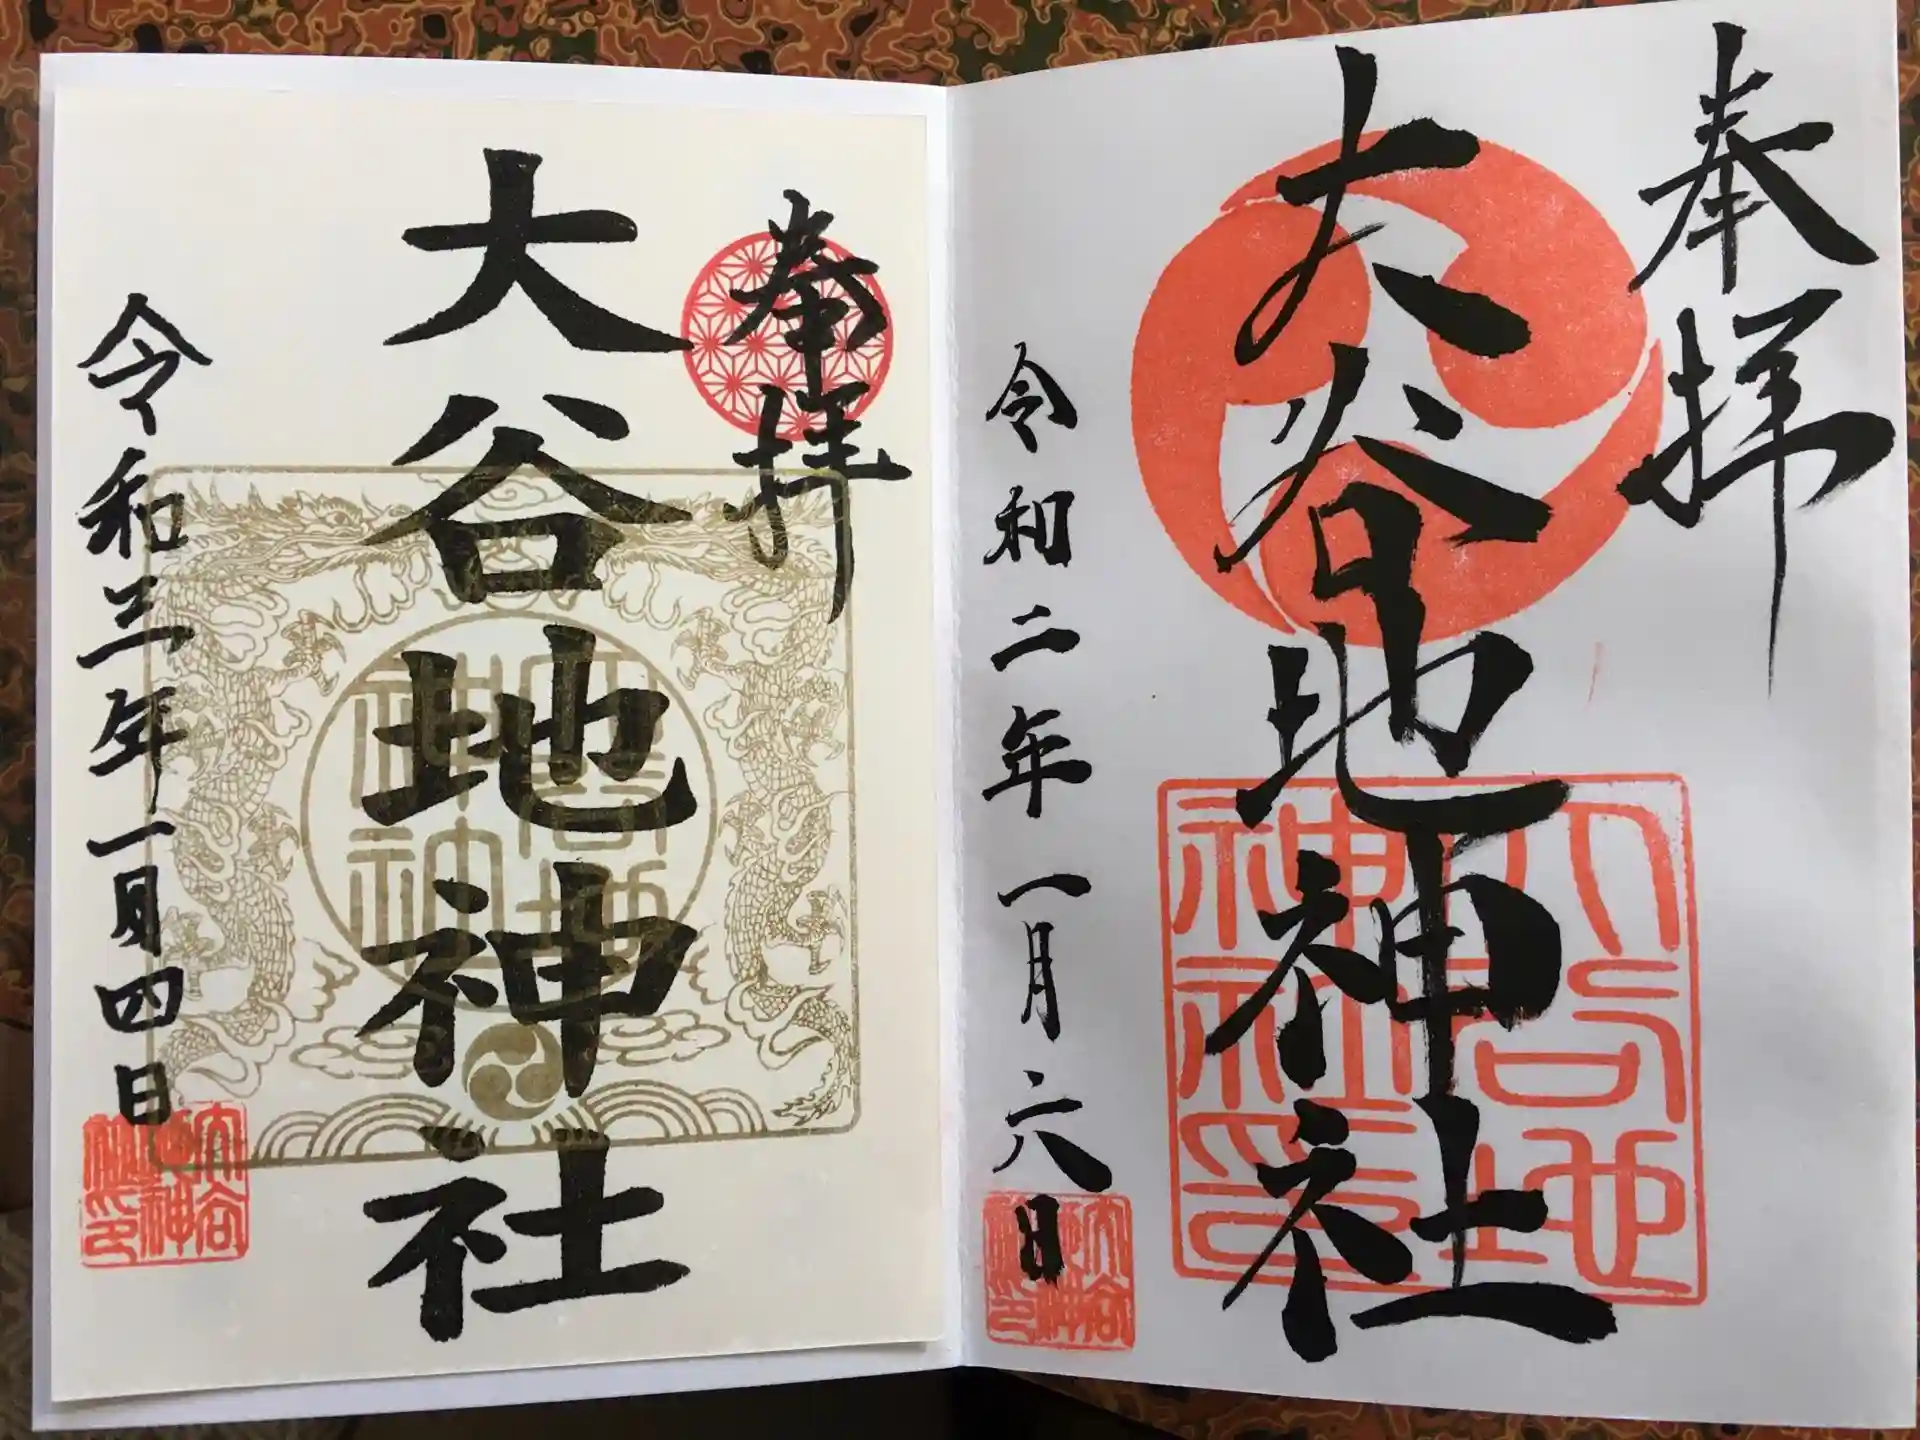 奉拝
大谷地神社
令和二年一月六日
大谷地
神社印
大谷
地神
社印
奉拝
大谷地神社
令和三年一月四日
大谷
地神
社印